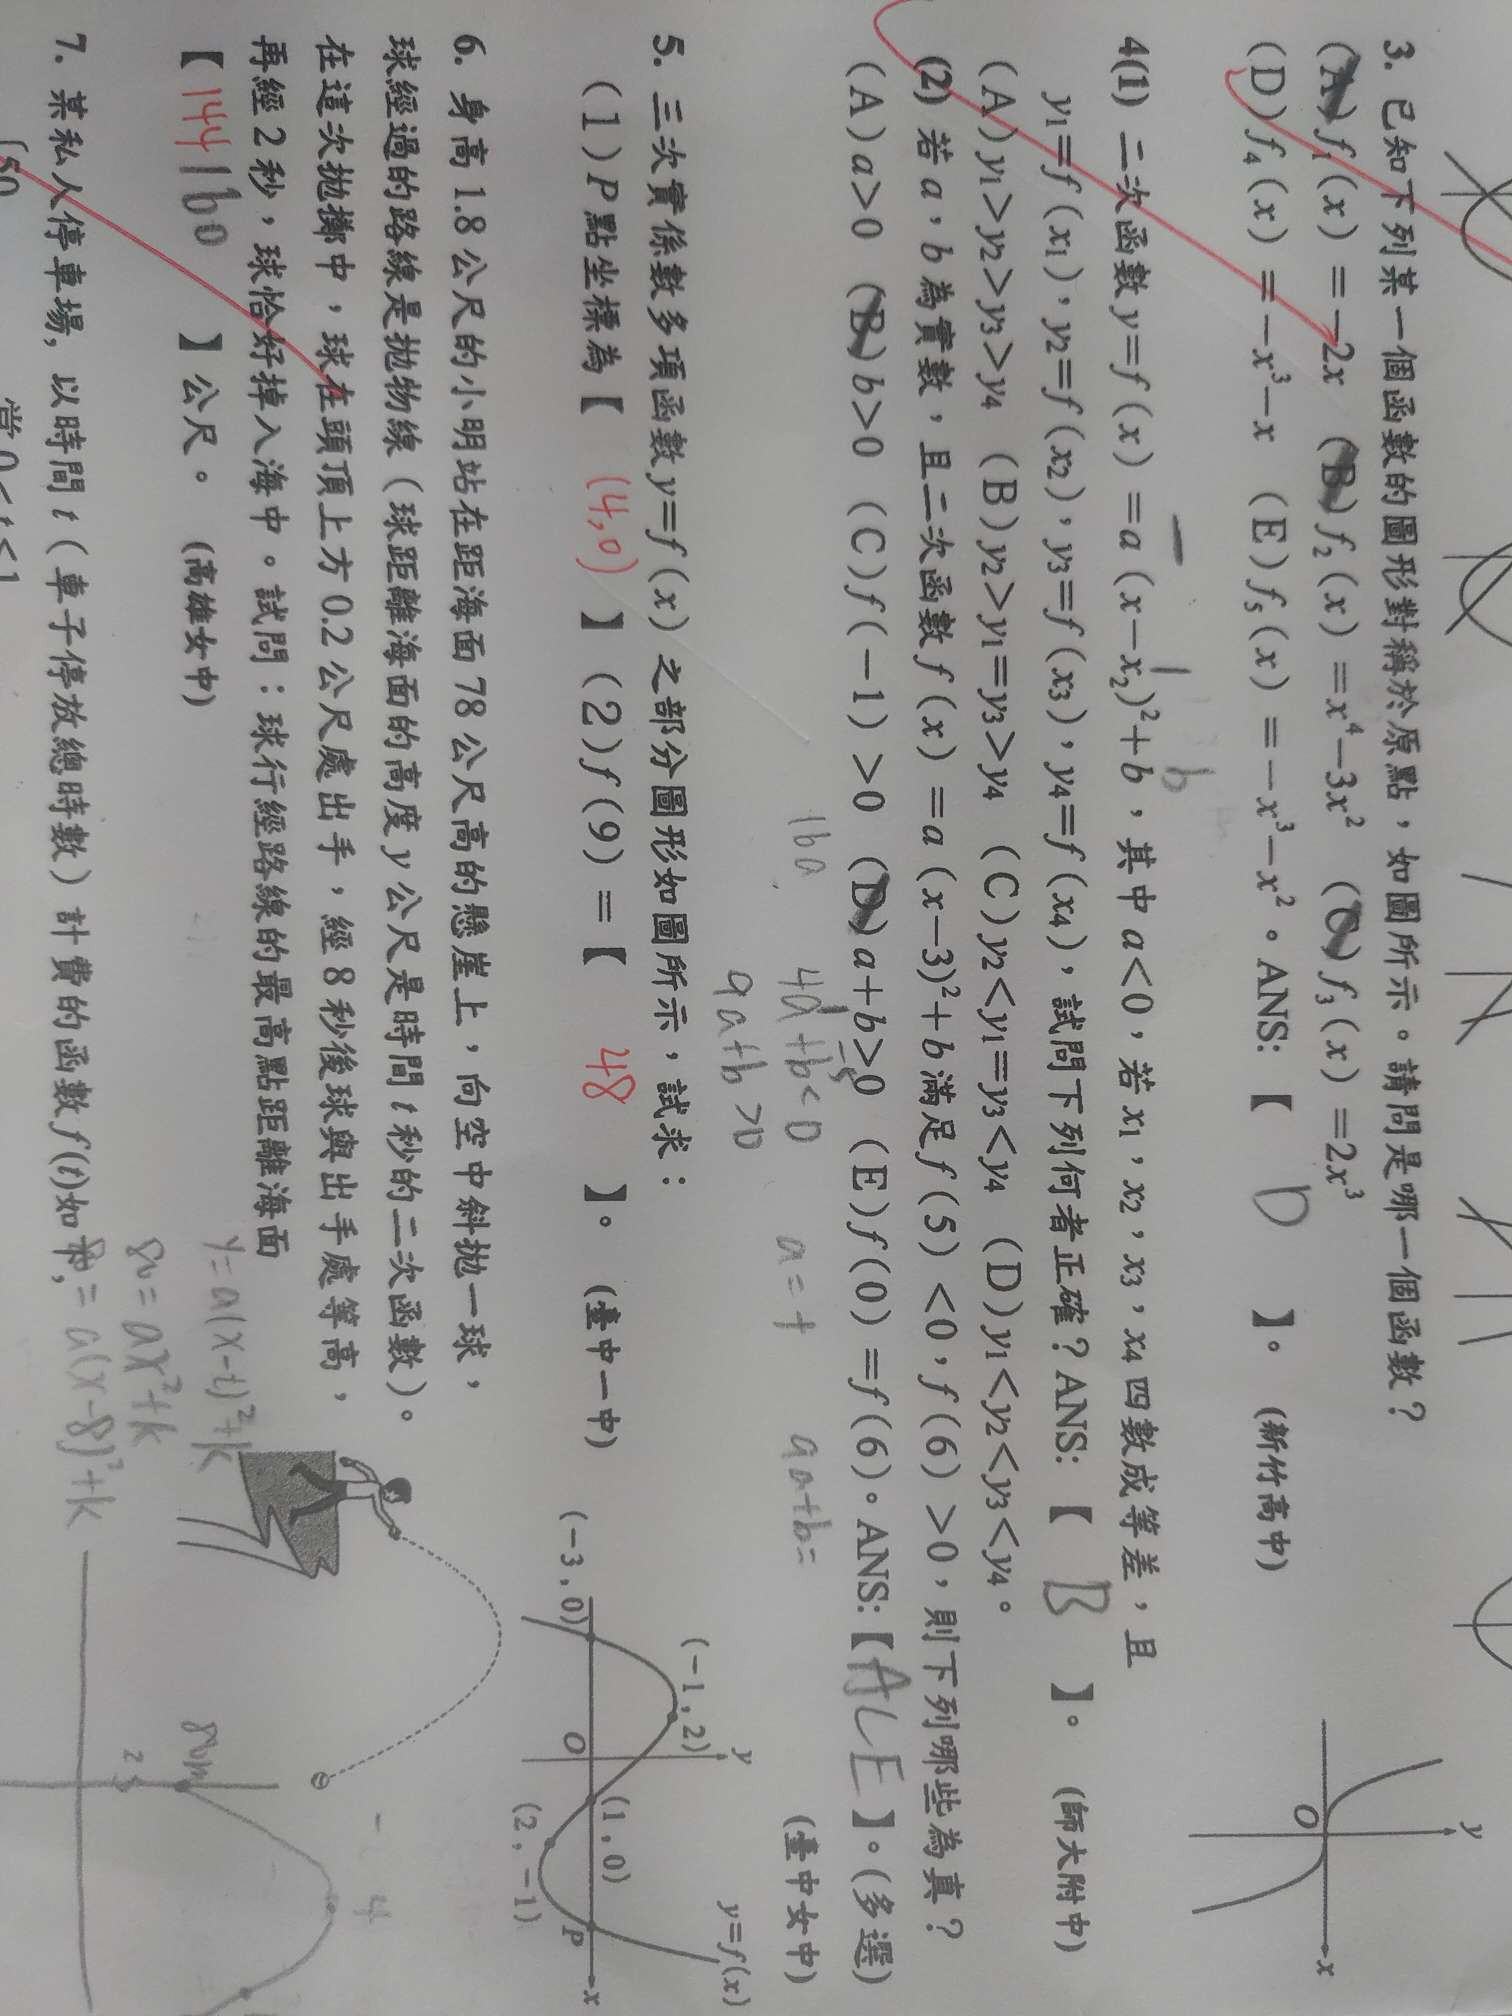 3. 已知下列某一個函數的圖形對稱於原點，如圖所示。請問是哪一個函數？
(A) f₁(x) = −2x (B) f₂(x) = x⁴−3x² (C) f₃(x) = 2x³
(D) f₄(x) = −x³−x (E) f₅(x) = −x³−x²。ANS:【 D 】。(新竹高中)
y
O
x
4(1) 二次函數 y=f(x) = a(x−x₂)²+b，其中 a<0，若 x₁，x₂，x₃，x₄ 四數成等差，且
y₁=f(x₁)，y₂=f(x₂)，y₃=f(x₃)，y₄=f(x₄)，試問下列何者正確？ANS:【 B 】。(師大附中)
(A) y₁>y₂>y₃>y₄ (B) y₂>y₁=y₃>y₄ (C) y₂<y₁=y₃<y₄ (D) y₁<y₂<y₃<y₄。
(2) 若 a，b 為實數，且二次函數 f(x) = a(x−3)²+b 滿足 f(5) <0，f(6) >0，則下列哪些為真？
(A) a>0 (B) b>0 (C) f(−1) >0 (D) a+b>0 (E) f(0) = f(6)。ANS:【ACE】。(多選)
(臺中女中)
16a
4a+b<0
9a+b>0
a=+
5. 三次實係數多項函數 y=f(x) 之部分圖形如圖所示，試求：
(1) P 點坐標為【 (4,0) 】(2) f(9) =【 48 】。(臺中一中)
(−3, 0)
(−1, 2)
y
O
(1, 0)
(2, −1)
P
x
y=f(x)
6. 身高 1.8 公尺的小明站在距海面 78 公尺高的懸崖上，向空中斜拋一球，
球經過的路線是拋物線（球距離海面的高度 y 公尺是時間 t 秒的二次函數）。
在這次拋擲中，球在頭頂上方 0.2 公尺處出手，經 8 秒後球與出手處等高，
再經 2 秒，球恰好掉入海中。試問：球行經路線的最高點距離海面
【 144 160 】公尺。(高雄女中)
y=a(x-t)²+k
80=ax²+k
=a(x-8)²+k
80m
4
7. 某私人停車場，以時間 t（車子停放總時數）計費的函數 f(t) 如下，
50
當 0<t≤1